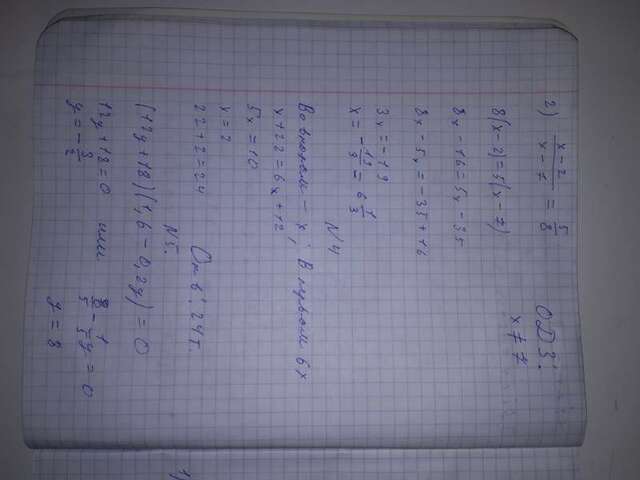 2) x-2/x-7 = 5/8 ОДЗ:
x ≠ 7
8(x-2)=5(x-7)
8x-16=5x-35
8x-5x=-35+16
3x=-19
x=-19/3=6 1/3
N4
Во втором - x; В первом 6x
x+22=6x+12
5x=10
x=2
22+2=24
Ответ: 24т.
N5.
(12y+18)(1,6-0,2y)=0
12y+18=0 или 8/5-1/5y=0
y=-3/2 y=8
1)